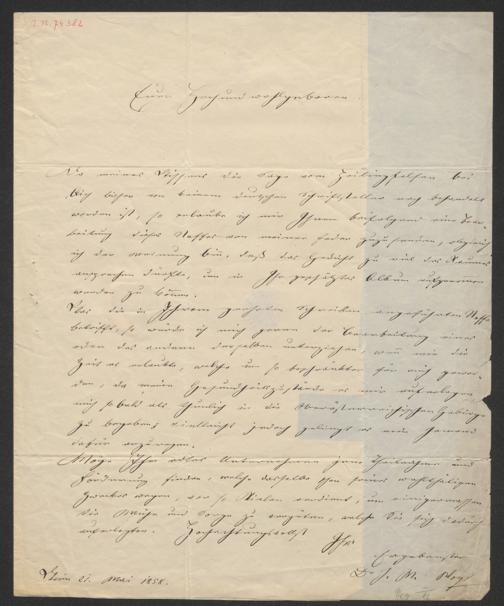 I.N. 74382
Euer Hochundwohlgeboren
Da meines Wissens die Sage vom Zeilingfelsen bei
bisher von keinem deutschen Schriftsteller noch behandelt
worden ist, so erlaube ich mir Ihnen beifolgend eine Bear-
beitung dieses Stoffes von meiner Feder zuzusenden, obgleich
ich der Meinung bin, daß das Gedicht zu viel des Raumes
ansprechen dürfte, um in Ihr geschätztes Album aufgenommen
werden zu können.
Was die in Ihrem geehrten Schreiben angeführten Stoffe
betrifft, so würde ich mich gerne der Bearbeitung eines
oder des anderen derselben unterziehen, wenn mir die
Zeit es erlaubte, welche um so beschränkter für mich gewor-
den, da meine Gesundheitszustände es mir auferlegen
mich so bald als thunlich in die Oberösterreichischen Gebirge
zu begeben; vielleicht jedoch gelingt es mir Jemand
dafür anzuregen.
Möge Ihr edles Unternehmen jene Theilnahme und
Förderung finden, welche dasselbe schon seines wohlthätigen
Zweckes wegen, vor so Vielen verdient, um einigermassen
die Mühe und Sorge zu vergüten, welche Sie sich dadurch
auferlegten. Hochachtungsvollst
Ihr
Ergebenster
Wien 21. Mai 1858.
Dr J. N. Vogl